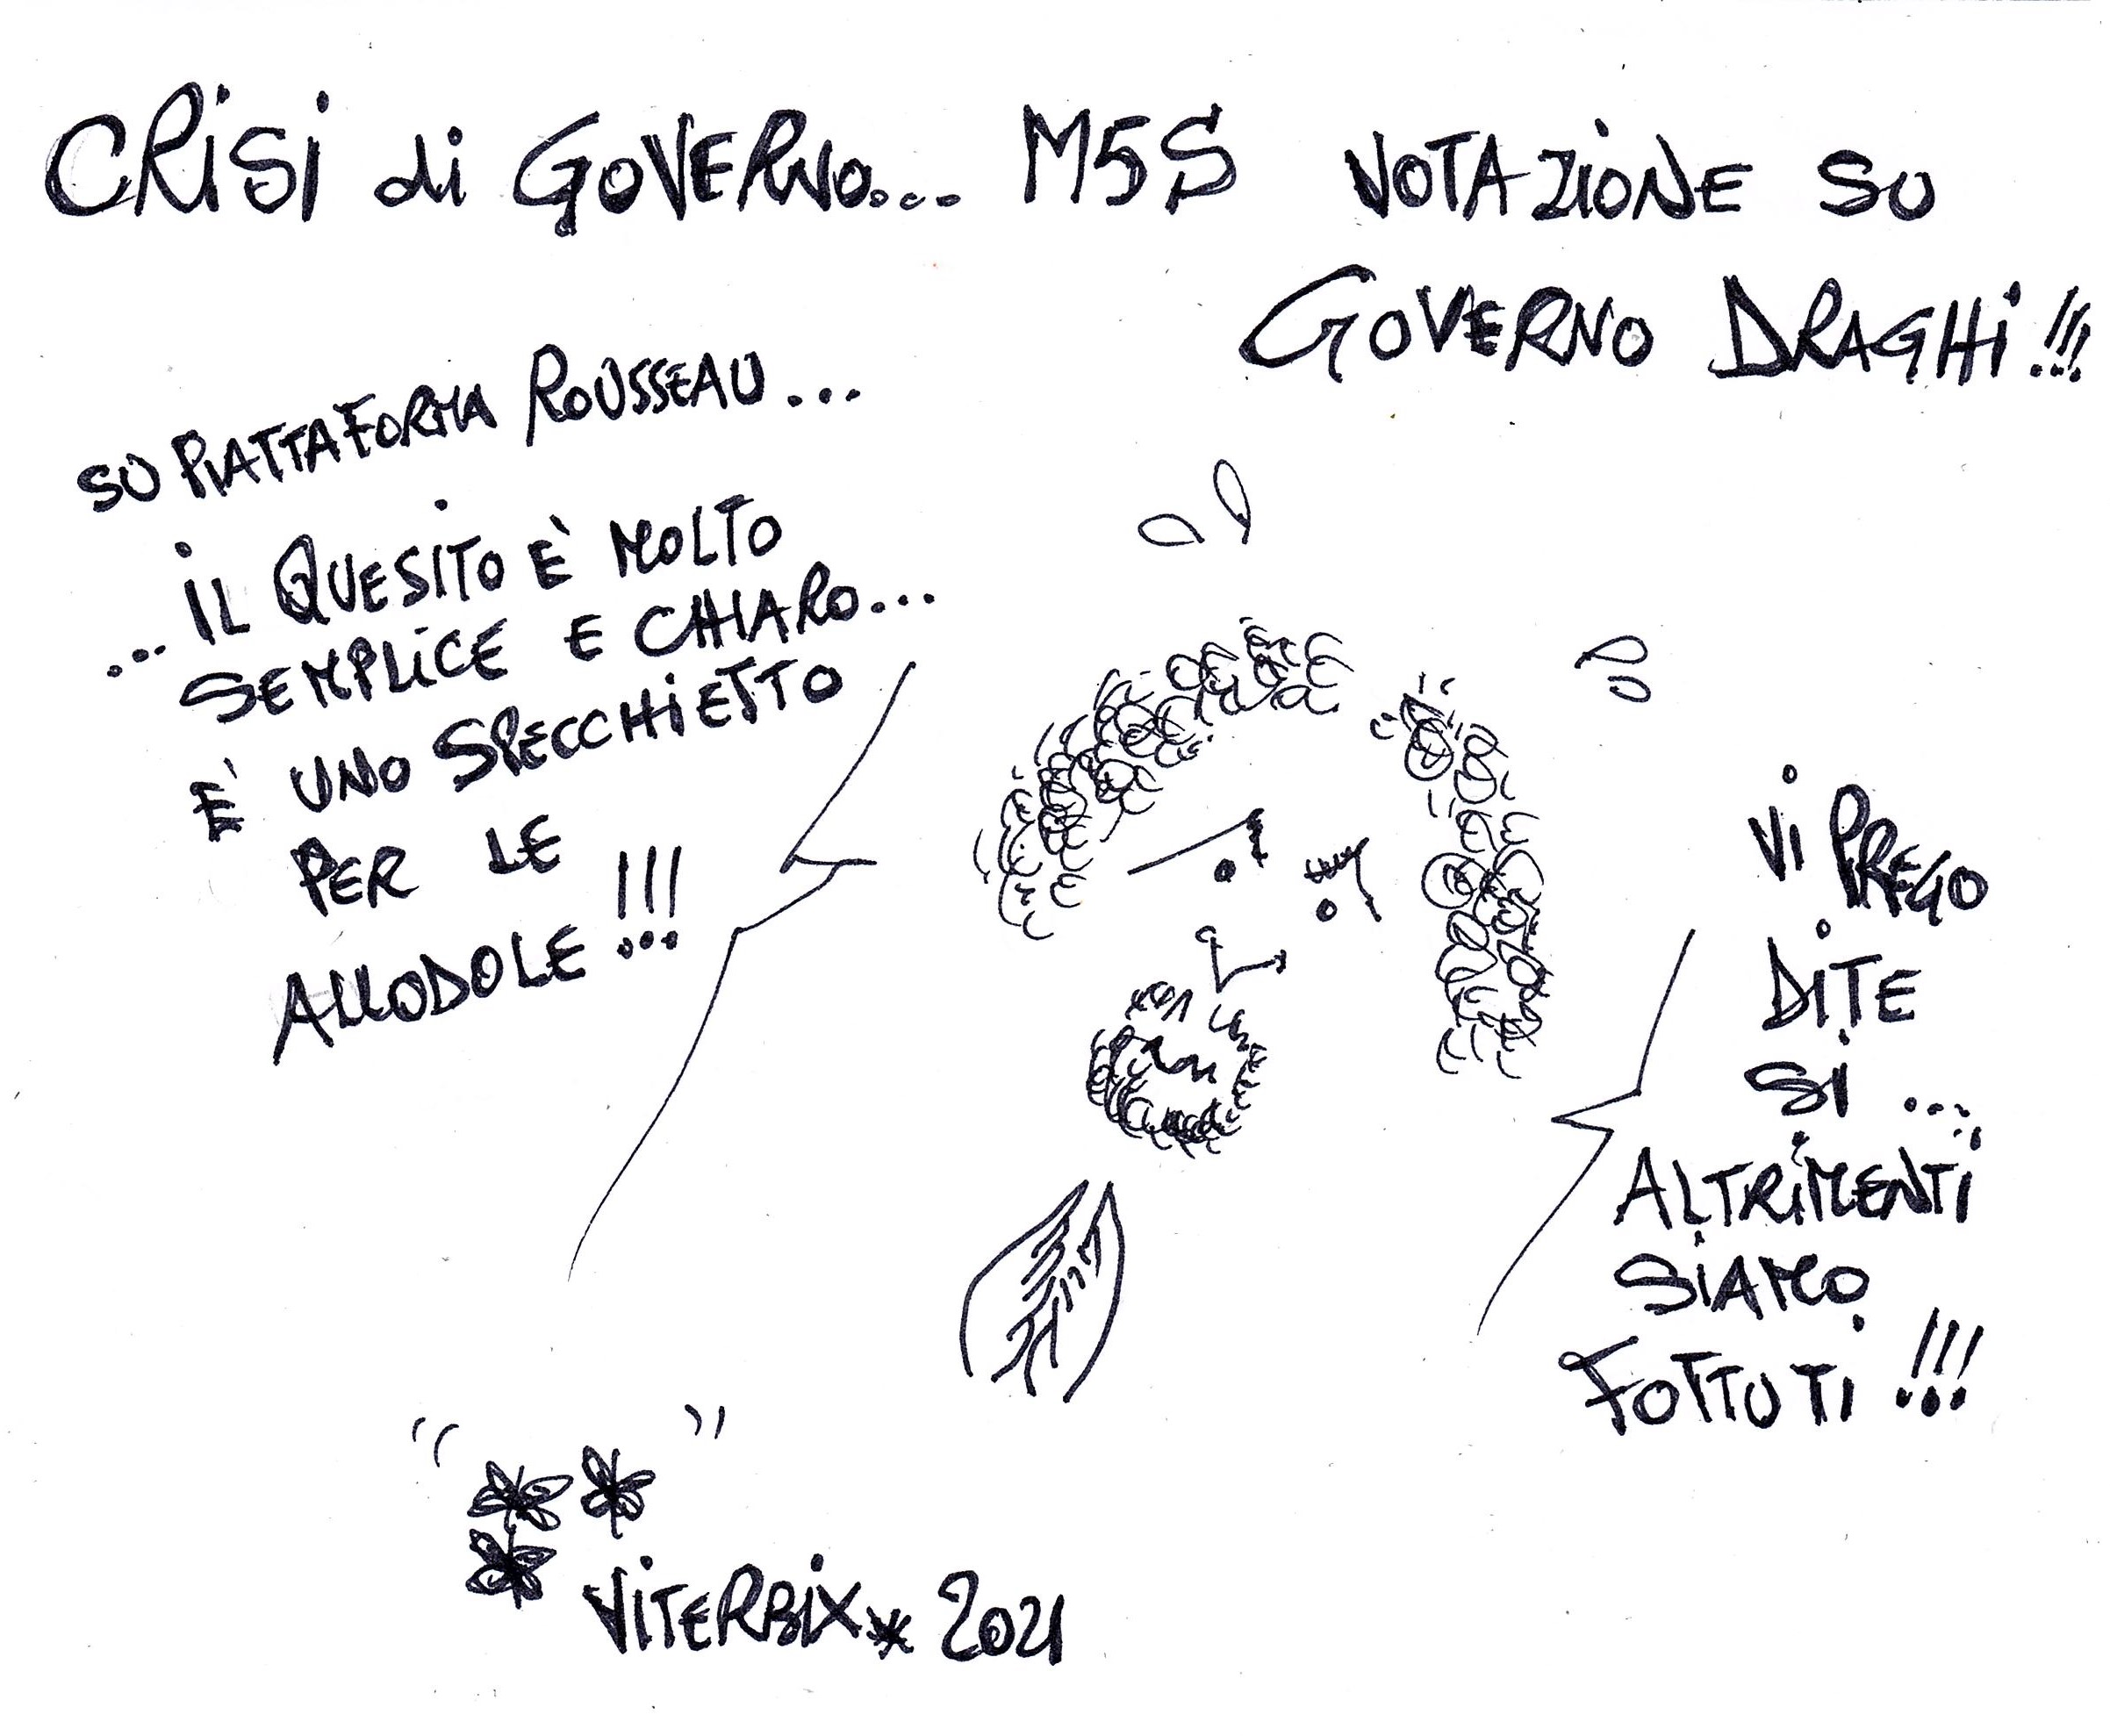 CRISI di GOVERNO... M5S VOTAZIONE SU
GOVERNO DRAGHI!!!
SU PIATTAFORMA ROUSSEAU...
...IL QUESITO È MOLTO
SEMPLICE E CHIARO...
È UNO SPECCHIETTO
PER LE
ALLODOLE!!!
VI PREGO
DITE
SI...
ALTRIMENTI
SIAMO
FOTTUTI!!!
VITERBIX* 2021